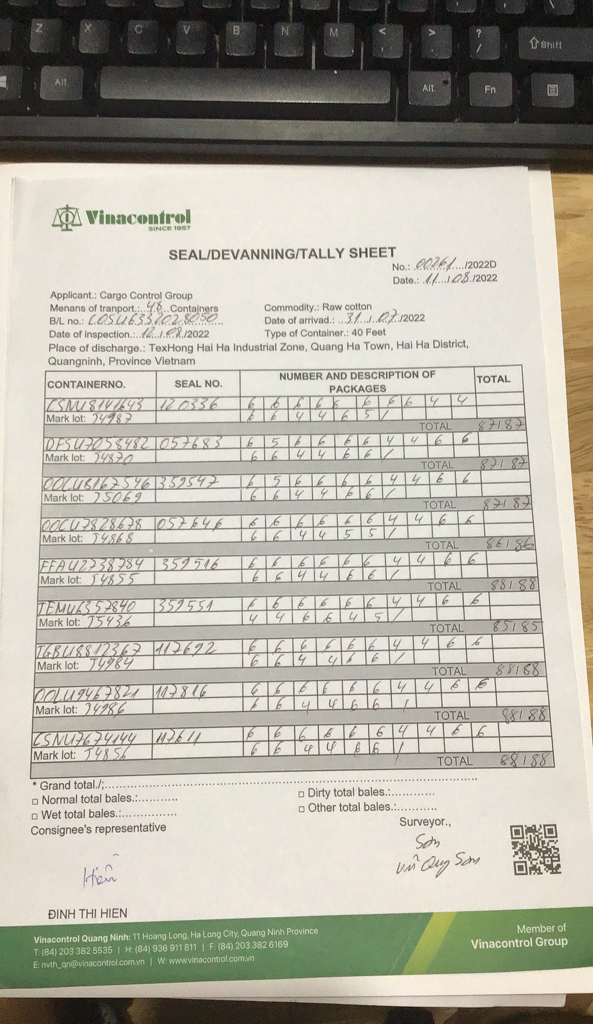 Z X C V B N M < , > . ? / Shift
Alt Alt Fn
Vinacontrol
SINCE 1957
SEAL/DEVANNING/TALLY SHEET
No.: 00261 /2022D
Date.: 11 / 08 /2022
Applicant.: Cargo Control Group
Menans of tranport.: 48 Containers Commodity.: Raw cotton
B/L no.: COSU6337028050 Date of arrivad.: 31 / 07 /2022
Date of inspection.: 12 / 08 /2022 Type of Container.: 40 Feet
Place of discharge.: TexHong Hai Ha Industrial Zone, Quang Ha Town, Hai Ha District,
Quangninh, Province Vietnam
CONTAINERNO. SEAL NO. NUMBER AND DESCRIPTION OF PACKAGES TOTAL
CSNU8141643 120336 6 6 6 6 6 6 6 6 4 4
Mark lot: 74987 6 6 4 4 6 5 /
TOTAL 87/87
DFSU7058482 057683 6 5 6 6 6 6 4 4 6 6
Mark lot: 74870 6 6 4 4 6 6 /
TOTAL 87/87
OOCU8167546 359547 6 5 6 6 6 6 4 4 6 6
Mark lot: 75069 6 6 4 4 6 6 /
TOTAL 87/87
OOCU7828678 057646 6 6 6 6 6 6 4 4 6 6
Mark lot: 74868 6 6 4 4 5 5 /
TOTAL 86/86
FFAU2738784 359516 6 6 6 6 6 6 4 4 6 6
Mark lot: 74855 6 6 4 4 6 6 /
TOTAL 88/88
TEMU6357840 359551 6 6 6 6 6 6 4 4 6 6
Mark lot: 75436 4 4 6 6 4 5 /
TOTAL 85/85
TGBU8812367 117692 6 6 6 6 6 6 4 4 6 6
Mark lot: 74984 6 6 4 4 6 6 /
TOTAL 88/88
OOLU9467821 117816 6 6 6 6 6 6 4 4 6 6
Mark lot: 74986 6 6 4 4 6 6 /
TOTAL 88/88
CSNU7674144 117611 6 6 6 6 6 6 4 4 6 6
Mark lot: 74856 6 6 4 4 6 6 /
TOTAL 88/88
* Grand total./:
□ Normal total bales.: □ Dirty total bales.:
□ Wet total bales.: □ Other total bales.:
Consignee's representative Surveyor.,
Sơn
Hiền Vũ Quý Sơn
ĐINH THI HIEN
Vinacontrol Quang Ninh: 11 Hoang Long, Ha Long City, Quang Ninh Province
T: (84) 203 382 5535 | H: (84) 936 911 811 | F: (84) 203 382 6169
E: nvth_qn@vinacontrol.com.vn | W: www.vinacontrol.com.vn
Member of
Vinacontrol Group